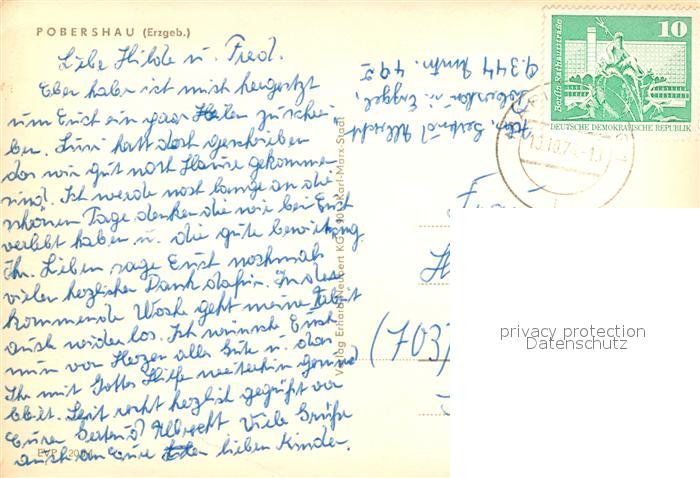 POBERSHAU (Erzgeb.)
Liebe Hilde u. Fred.
Eben habe ich mich hingesetzt
um Euch ein paar Zeilen zu schrei
ben. Susi hatt doch geschrieben
das wir gut nach Hause gekommen
sind. Ich werde noch lange an die
schönen Tage denken die wir bei Euch
verlebt haben u. die gute bewirtung.
Ihr Lieben sage Euch nochmals
vielen herzlichen Dank dafür. In der
kommende Woche geht meine Arbeit
auch wieder los. Ich wünsche Euch
nun von Herzen alles Gute u. das
Ihr mit Gottes Hilfe weiterhin gesund
bleit. Seit recht herzlich gegrüßt von
Eurer Gertrud Albrecht Viele Grüße
auch an Eure lieben Kinder.
EVP
Verlag Erhard Neubert KG, Karl-Marx-Stadt
Abs. Gertrud Albrecht
Pobershau i. Erzgeb.
9344
Berlin, Rathausstraße
10
DEUTSCHE DEMOKRATISCHE REPUBLIK
(703)
privacy protection
Datenschutz